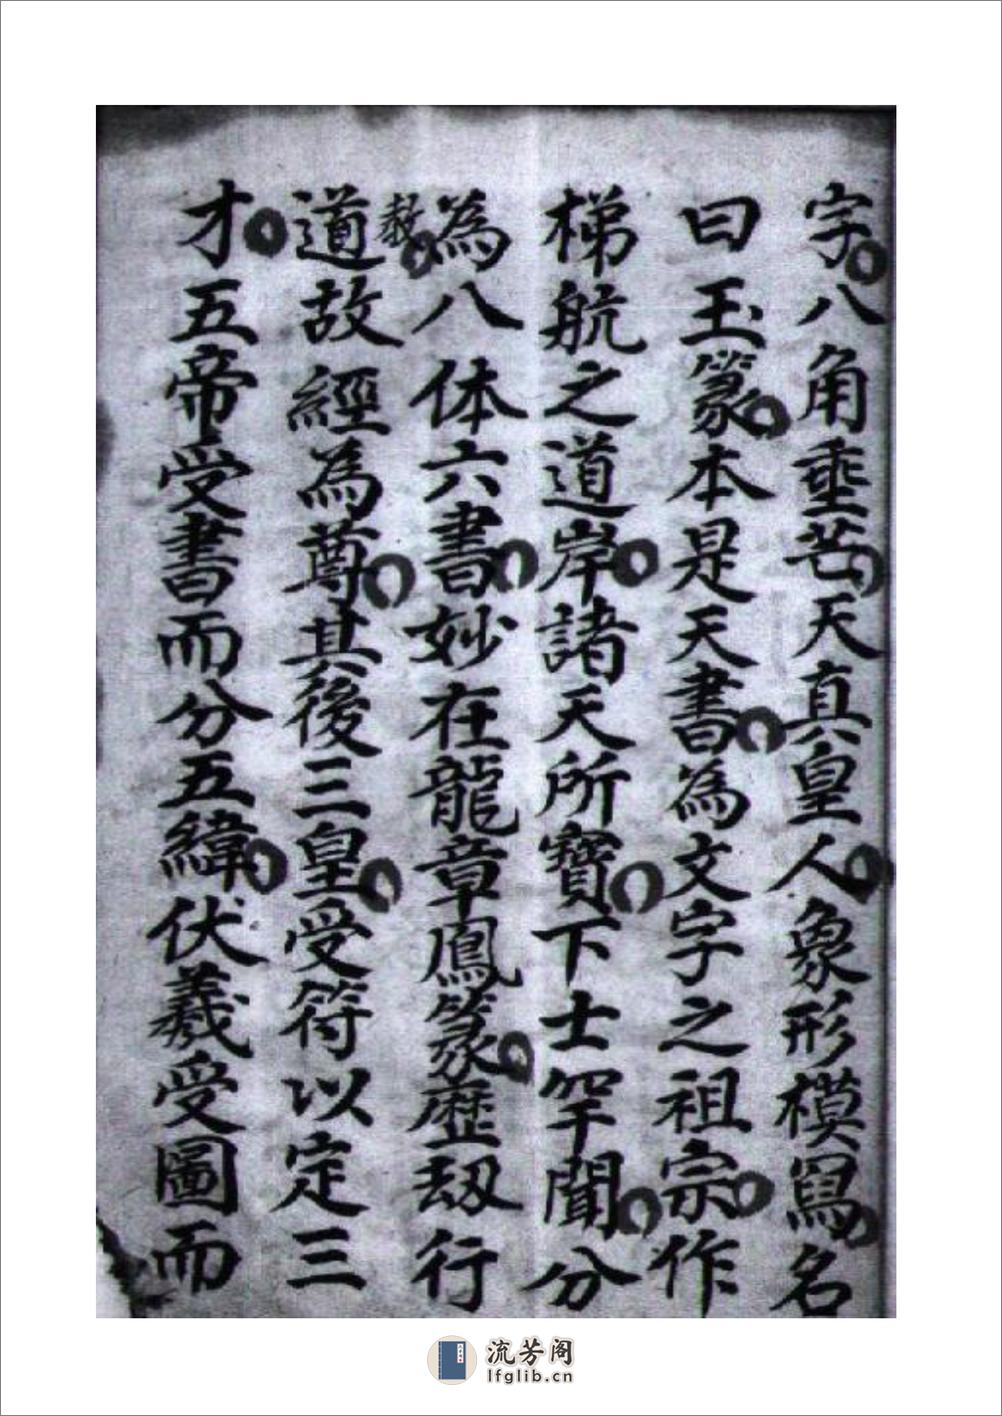 字八角垂芒天真皇人象形模寫名
曰玉篆本是天書為文字之祖宗作
梯航之道岸諸天所寶下士罕聞分
為八体六書妙在龍章鳳篆歷劫行
教
道故經為尊其後三皇受符以定三
才五帝受書而分五緯伏羲受圖而
流芳阁
lfglib.cn